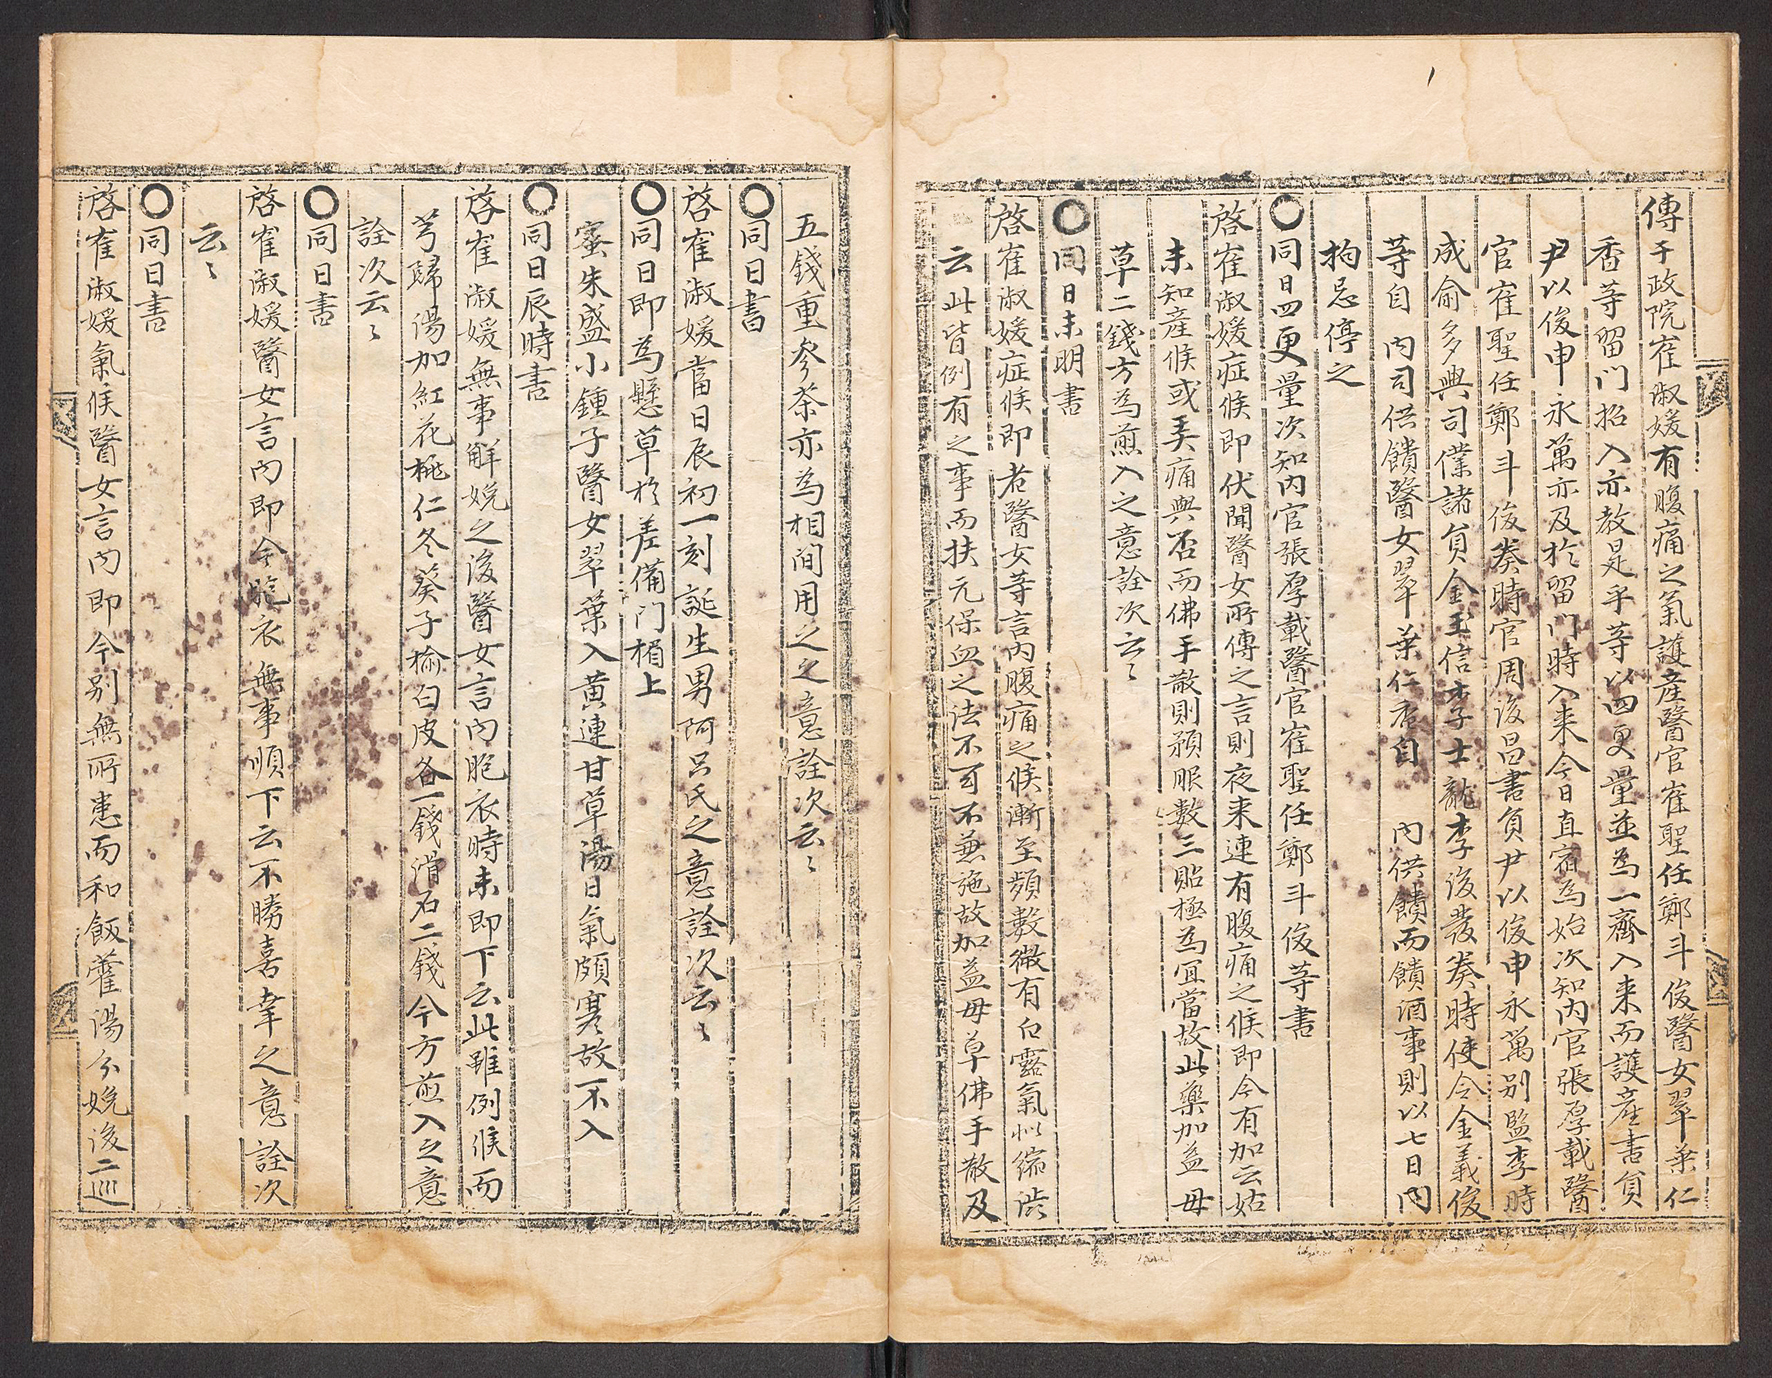 傳于政院崔淑媛有腹痛之氣護產醫官崔聖任鄭斗俊醫女翠葉仁
香等留門招入亦教是乎等以四更量並爲一齊入來而護產書員
尹以俊申永萬亦及扵留門時入來今日直宿爲始次知內官張厚載醫
官崔聖任鄭斗俊奏時官周後昌書員尹以俊申永萬別監李時
成俞多興司僕諸員金玉信李士龍李後發奏時使令金義俊
等自 內司供饋醫女翠葉仁香自 內供饋而饋酒事則以七日內
拘忌停之
○同日四更量次知內官張厚載醫官崔聖任鄭斗俊等書
啓崔淑媛症候即伏聞醫女所傳之言則夜來連有腹痛之候即今有加云姑
未知產候或弄痛與否而佛手散則預服數三貼極爲宜當故此藥加益母
草二錢方爲煎入之意詮次云〻
○同日未明書
啓崔淑媛症候即者醫女等言內腹痛之候漸至頻數微有白露氣似綿涉
云此皆例有之事而扶元保血之法不可不兼施故加益母草佛手散及
五錢重參茶亦爲相間用之之意詮次云〻
○同日書
啓崔淑媛當日辰初一刻誕生男阿只氏之意詮次云〻
○同日即爲懸草扵差備門楣上
蜜朱盛小鍾子醫女翠葉入黃連甘草湯日氣頗寒故不入
○同日辰時書
啓崔淑媛無事解娩之後醫女言內胞衣時未即下云此雖例候而
芎歸湯加紅花桃仁冬葵子榆白皮各一錢滑石二錢今方煎入之意
詮次云〻
○同日書
啓崔淑媛醫女言內即今胞衣無事順下云不勝喜幸之意詮次
云〻
○同日書
啓崔淑媛氣候醫女言內即今別無所患而和飯藿湯分娩後二巡